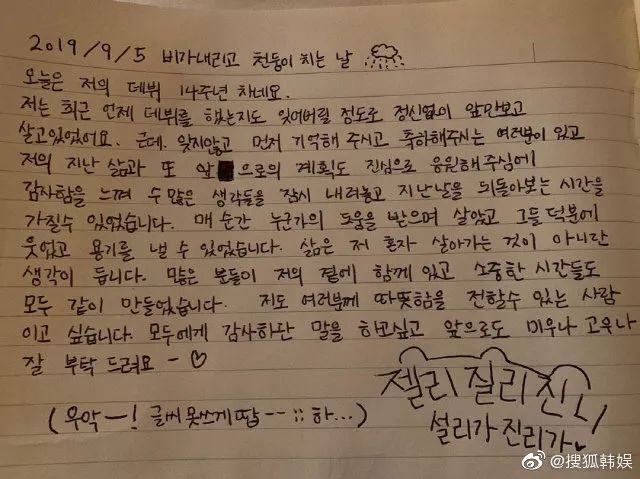 2019/9/5 비가내리고 천둥이 치는 날
오늘은 저의 데뷔 14주년 차네요.
저는 최근 언제 데뷔를 했는지도 잊어버릴 정도로 정신없이 앞만보고
살고있었어요. 근데, 잊지않고 먼저 기억해 주시고 축하해주시는 여러분이 있고
저의 지난 삶과 또 앞으로의 계획도 진심으로 응원해 주심에
감사함을 느껴 수 많은 생각들을 잠시 내려놓고 지난날을 뒤돌아보는 시간을
가질수 있었습니다. 매 순간 누군가의 도움을 받으며 살았고 그들 덕분에
웃었고 용기를 낼 수 있었습니다. 삶은 저 혼자 살아가는 것이 아니란
생각이 듭니다. 많은 분들이 저의 곁에 함께 있고 소중한 시간들도
모두 같이 만들었습니다. 저도 여러분께 따뜻함을 전할수 있는 사람
이고 싶습니다. 모두에게 감사하단 말을 하고싶고 앞으로도 미우나 고우나
잘 부탁 드려요 - ♡
젤리 질리 진
설리가 진리가
(우악 -! 글씨 못쓰게땁 -- ;; 하...)
@搜狐韩娱